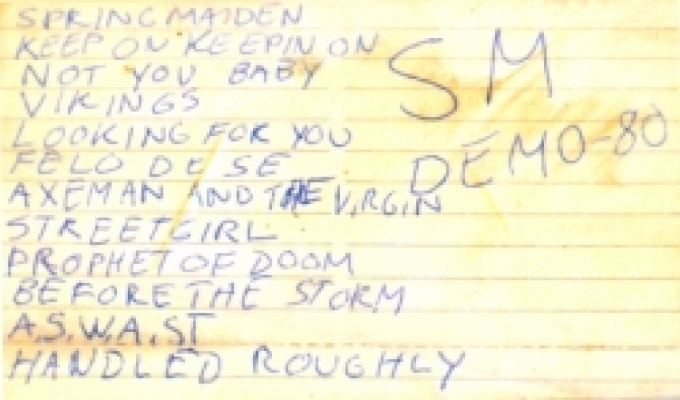 SPRING MAIDEN
KEEP ON KEEPIN ON
NOT YOU BABY
VIKINGS
LOOKING FOR YOU
FELO DE SE
AXEMAN AND THE VIRGIN
STREETGIRL
PROPHET OF DOOM
BEFORE THE STORM
A.S.W.A.ST
HANDLED ROUGHLY
SM
DEMO-80